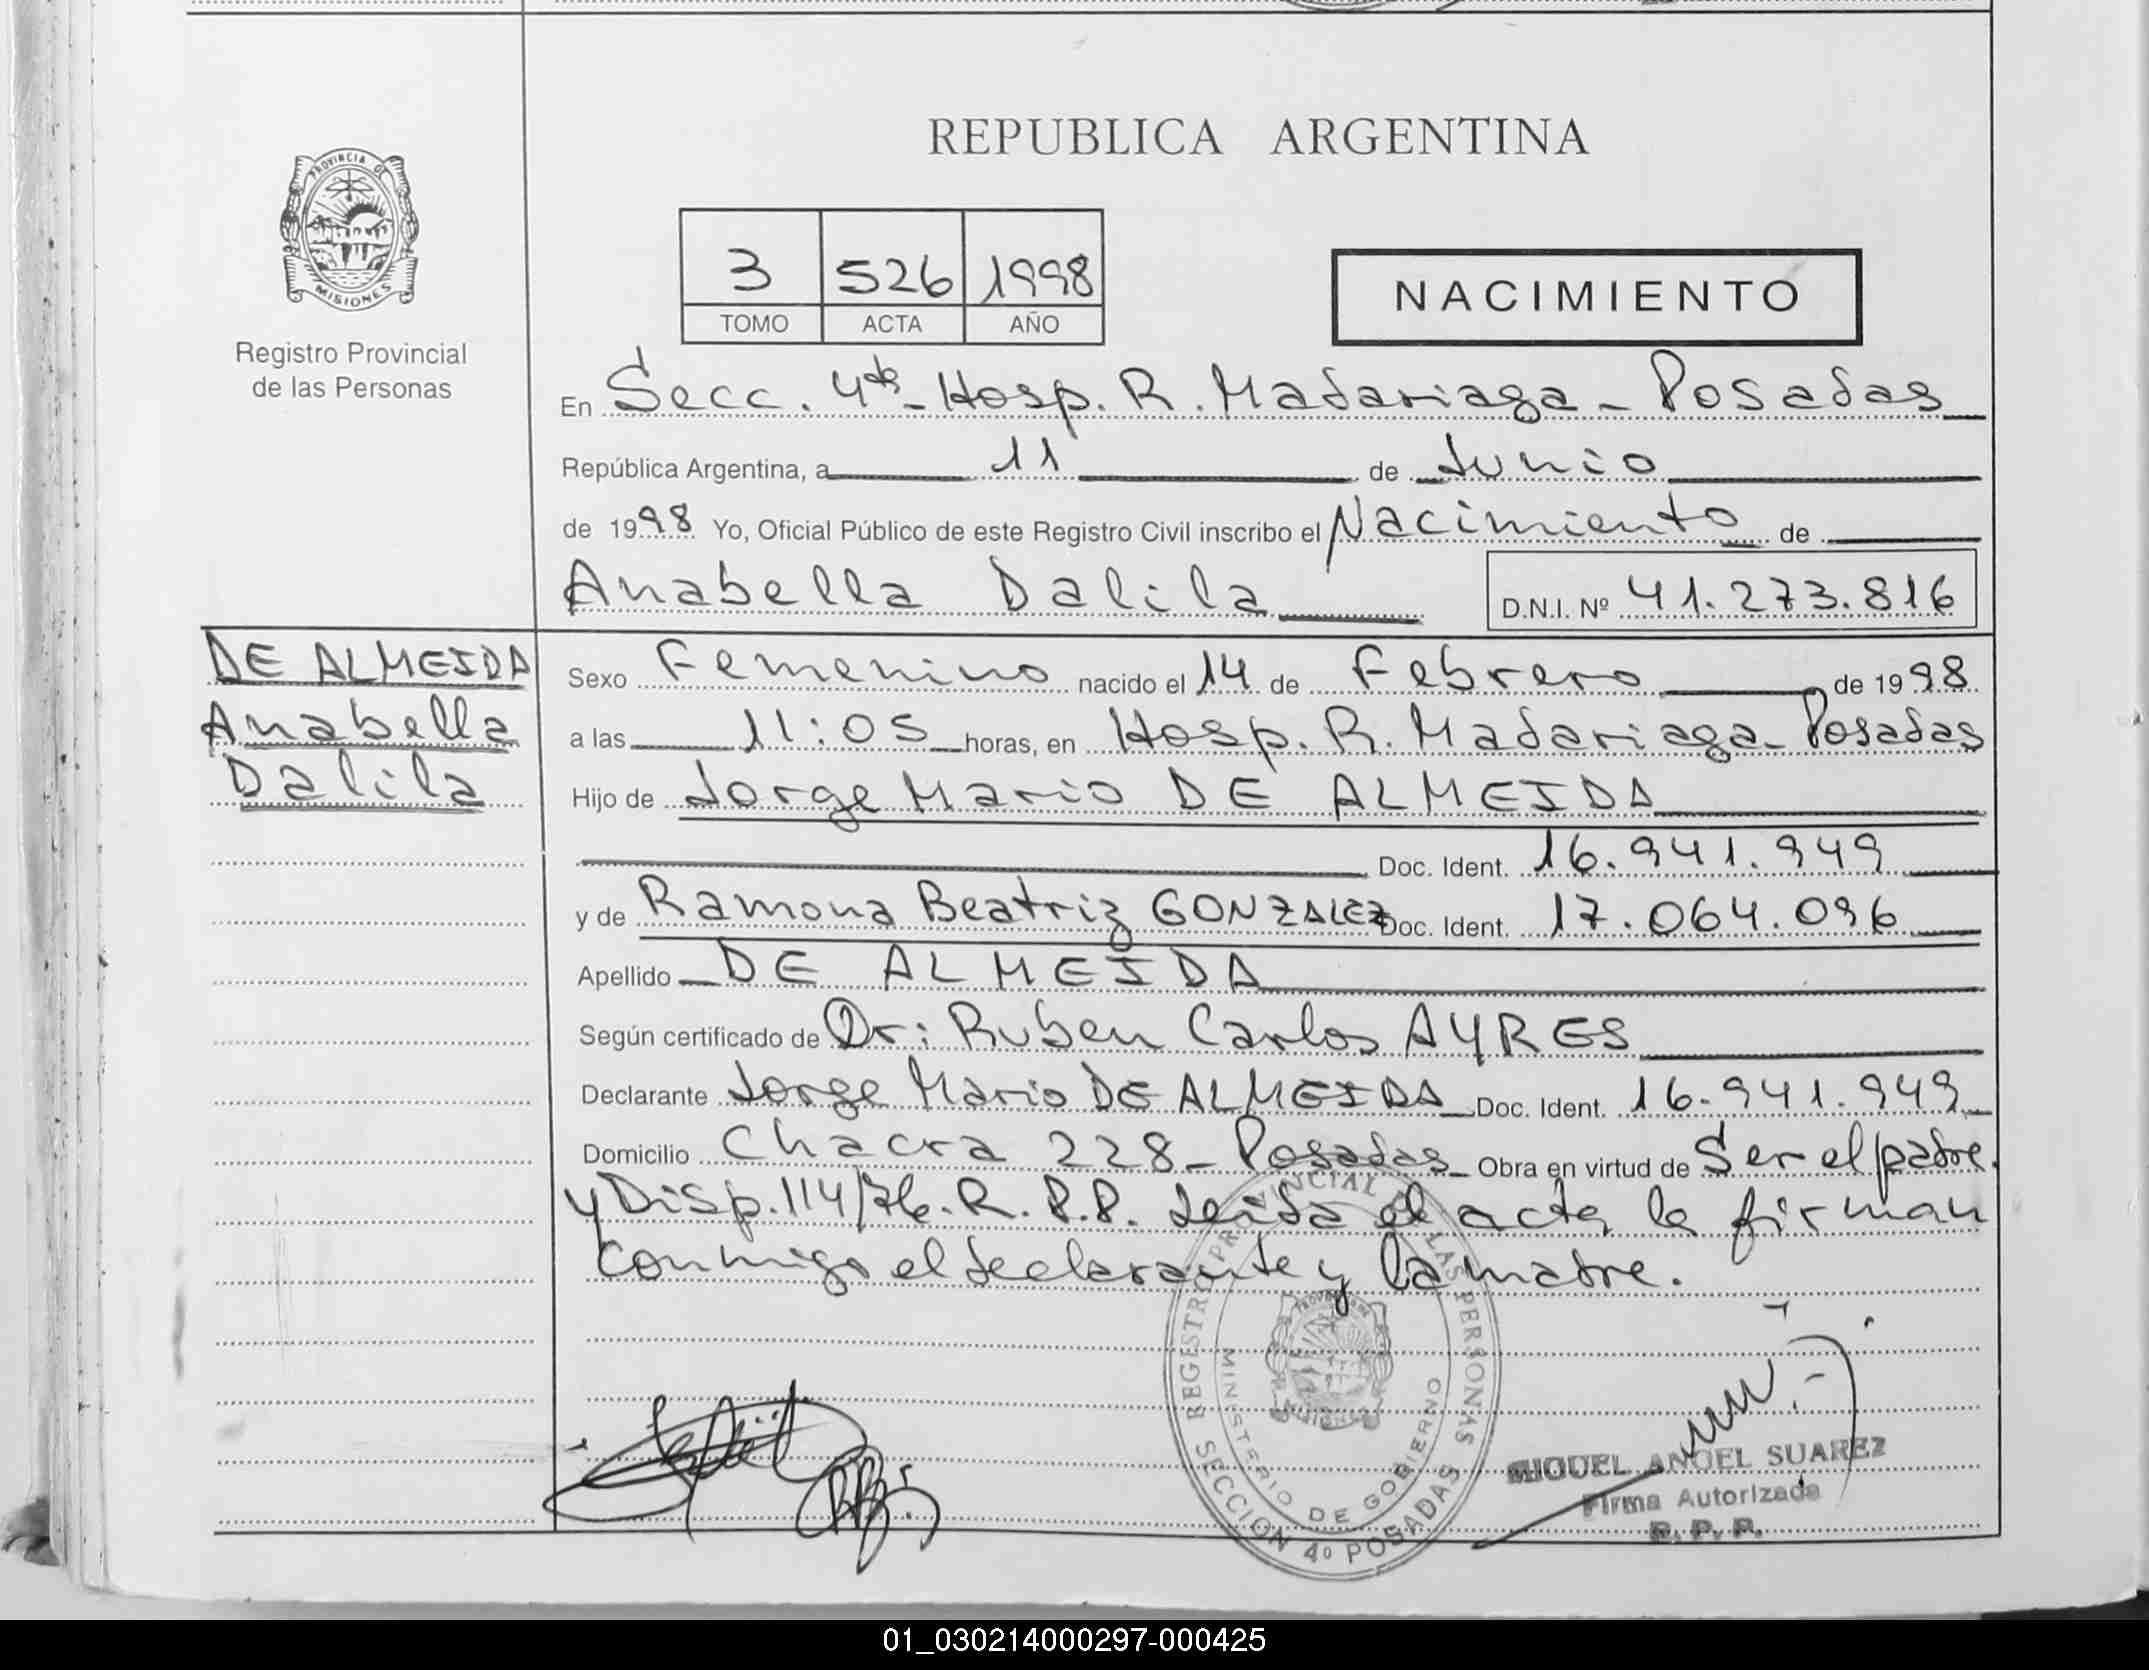 REPUBLICA ARGENTINA
PROVINCIA DE
MISIONES
Registro Provincial
de las Personas
3 526 1998
TOMO ACTA AÑO
NACIMIENTO
En Secc. 4ta - Hosp. R. Madariaga - Posadas
República Argentina, a 11 de Junio
de 1998 Yo, Oficial Público de este Registro Civil inscribo el Nacimiento de
Anabella Dalila D.N.I. Nº 41.273.816
DE ALMEIDA
Anabella
Dalila
Sexo Femenino nacido el 14 de Febrero de 1998
a las 11:05 horas, en Hosp. R. Madariaga - Posadas
Hijo de Jorge Mario DE ALMEIDA
Doc. Ident. 16.941.949
y de Ramona Beatriz GONZALEZ Doc. Ident. 17.064.096
Apellido DE ALMEIDA
Según certificado de Dr: Ruben Carlos AYRES
Declarante Jorge Mario DE ALMEIDA Doc. Ident. 16.941.949
Domicilio Chacra 228 - Posadas - Obra en virtud de Ser el padre.
y Disp. 114/76. R. P. P. Leida el acta la firman
conmigo el declarante y la madre.
REGISTRO PROVINCIAL DE LAS PERSONAS
MINISTERIO DE GOBIERNO
SECCION 4º POSADAS
MIGUEL ANGEL SUAREZ
Firma Autorizada
R. P. P.
01_030214000297-000425